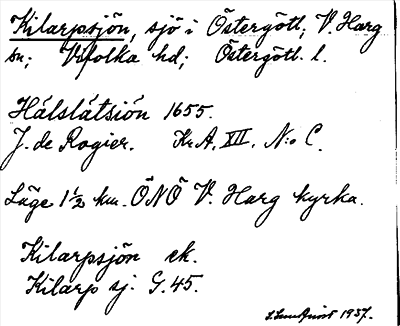 Kilarpsjön, sjö i Östergötl; V. Harg
sn; Vifolka hd; Östergötl. l.
Hálslátsiön 1655.
J. de Rogier. Kr. A. XII. N:o C.
Läge 1 1/2 km. ÖNÖ V. Harg kyrka.
Kilarpsjön ek.
Kilarp sj. G. 45.
1937.